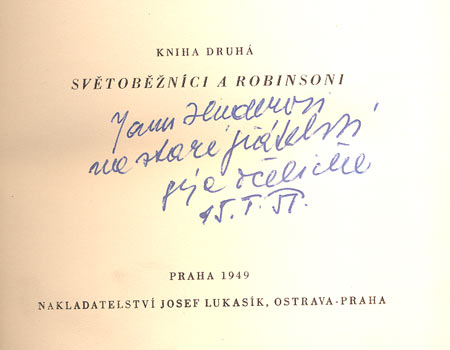 KNIHA DRUHÁ
SVĚTOBĚŽNÍCI A ROBINSONI
Janu
na staré přátelství
15. I. 51.
PRAHA 1949
NAKLADATELSTVÍ JOSEF LUKASÍK, OSTRAVA-PRAHA